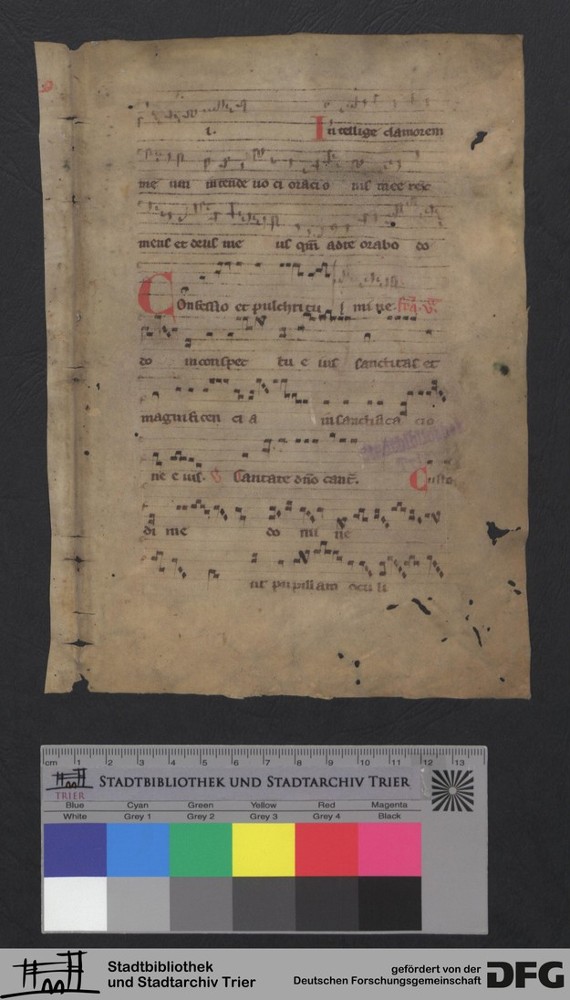 i. Intellige clamorem
me um intende uo ci oracio nis mee rex
meus et deus me us qm ad te orabo do
Confessio et pulchritu mi ne.
do in conspec tu e ius sanctitas et
magnificen cia in sanctifica cio
ne e ius. Cantate dno cant. Custo
di me do mi ne
ut pupillam oculi
cm 1 2 3 4 5 6 7 8 9 10 11 12 13
TRIER
STADTBIBLIOTHEK UND STADTARCHIV TRIER
Blue Cyan Green Yellow Red Magenta
White Grey 1 Grey 2 Grey 3 Grey 4 Black
Stadtbibliothek
und Stadtarchiv Trier
gefördert von der
Deutschen Forschungsgemeinschaft
DFG